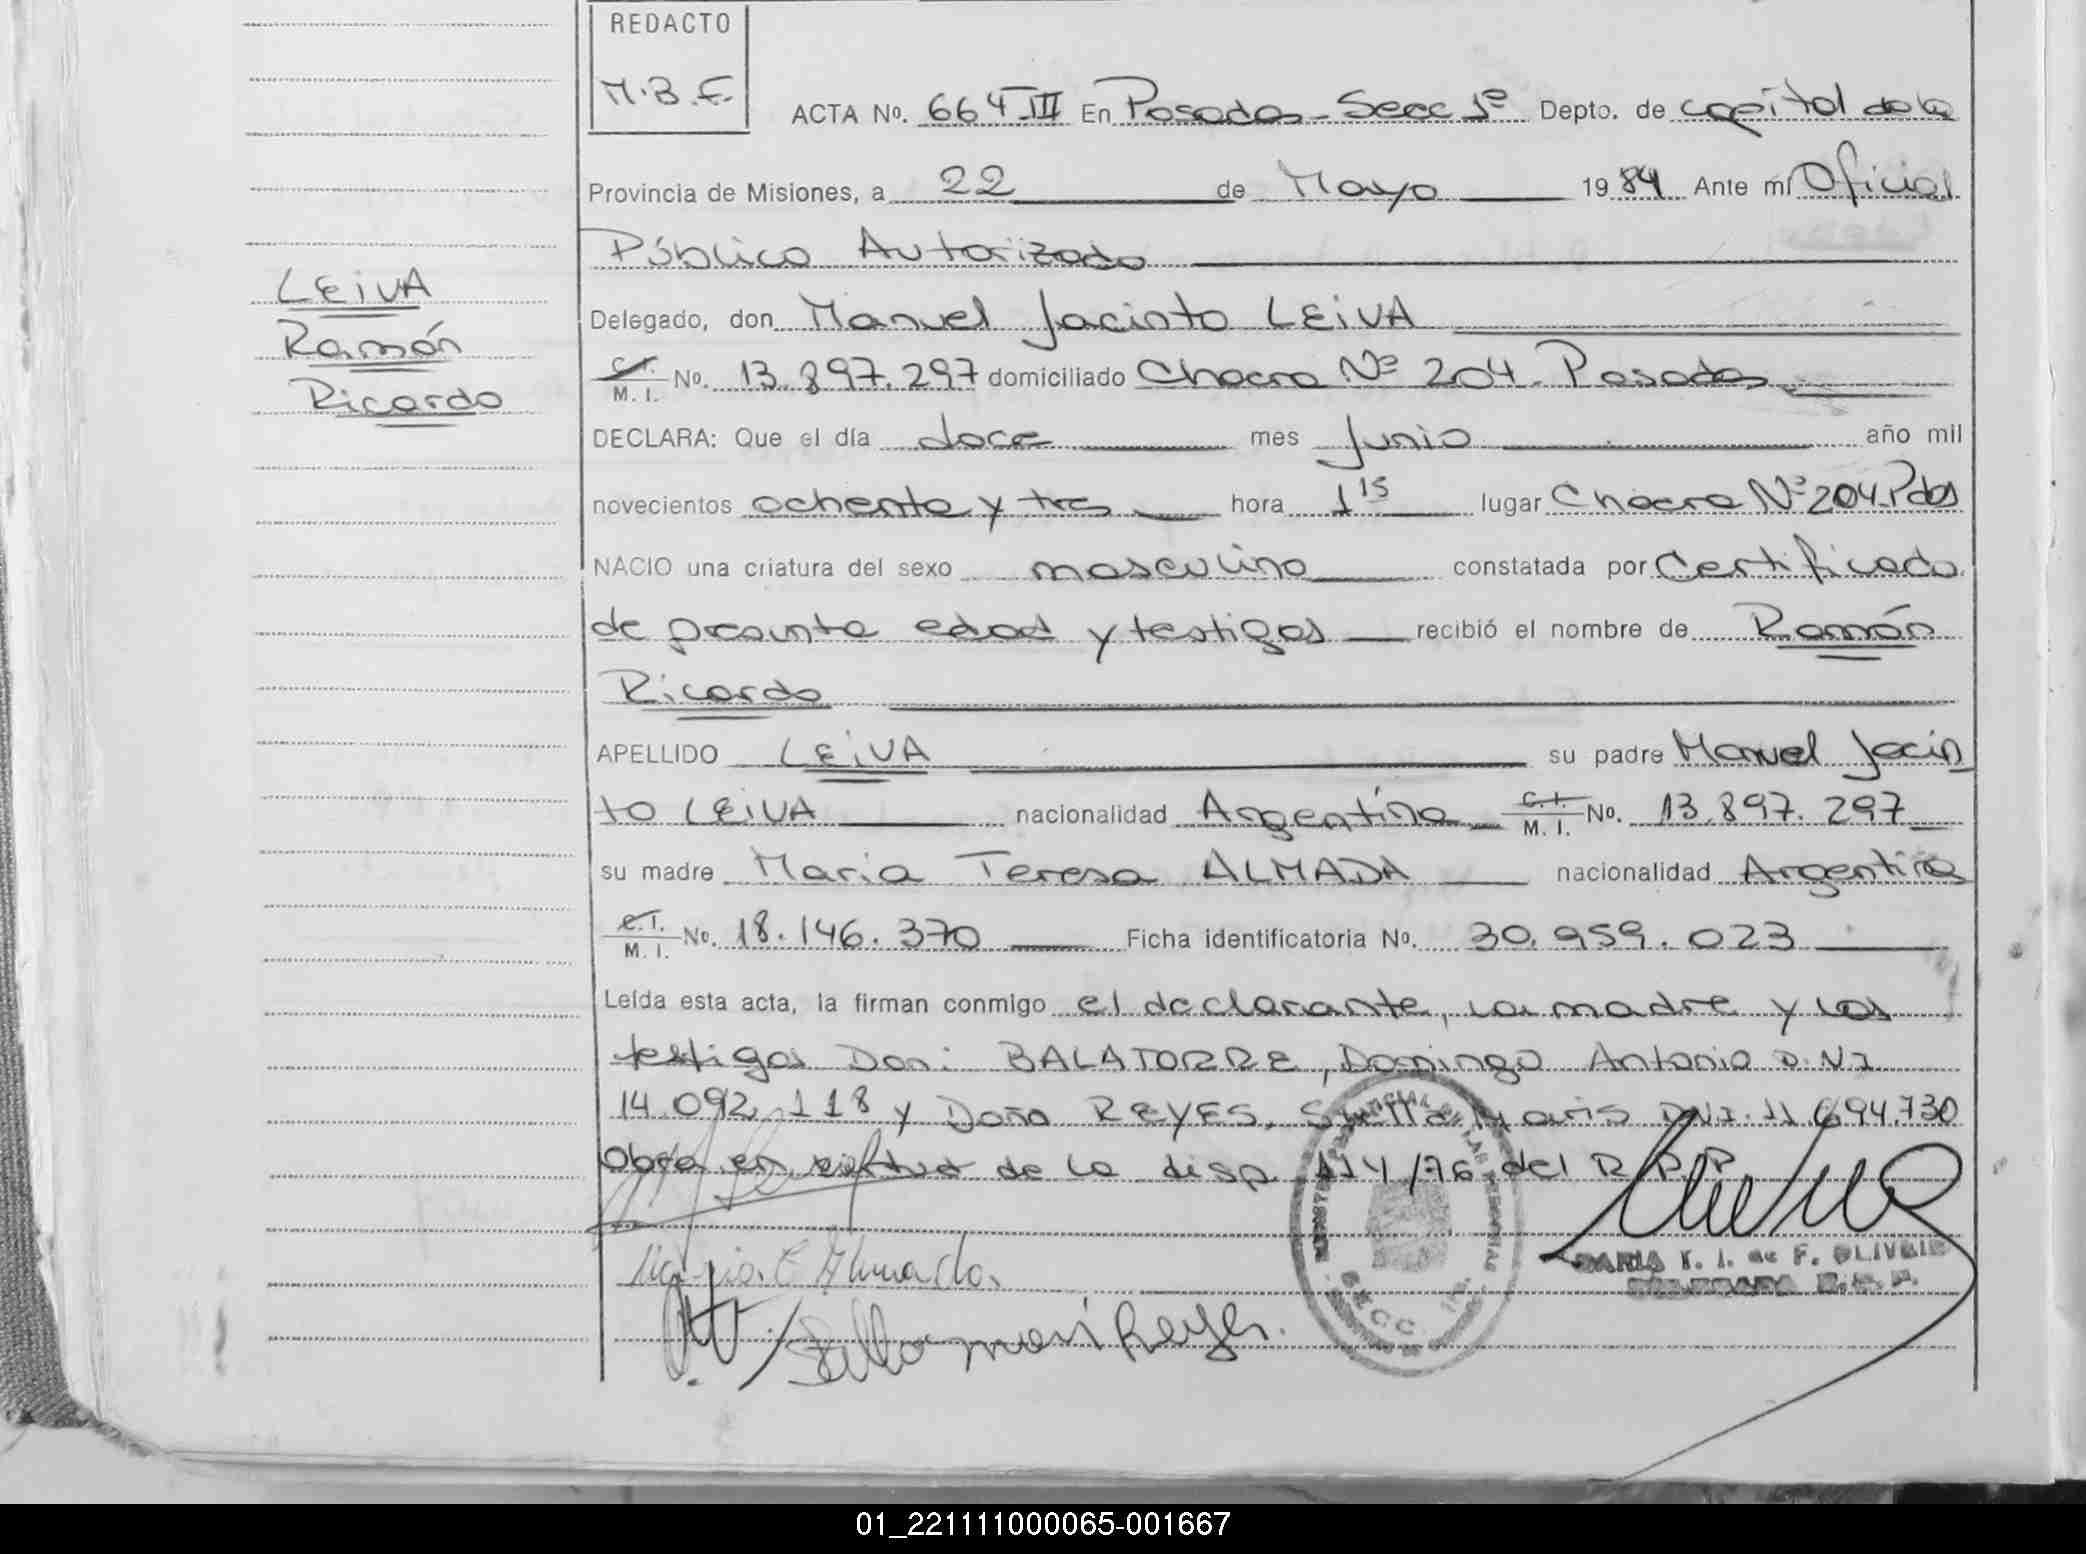 REDACTO
M.B.F.
ACTA No. 664 TIII En Posadas - Secc 1º Depto. de capital de la
Provincia de Misiones, a 22 de Mayo 1984 Ante mí Oficial
Público Autorizado
LEIVA
Ramón
Ricardo
Delegado, don Manuel Jacinto LEIVA
C.I. M. I. No. 13.897.297 domiciliado Chacra Nº 204. Posadas
DECLARA: Que el día doce mes Junio año mil
novecientos ochenta y tres hora 1 15 lugar Chacra Nº 204. Pdas
NACIO una criatura del sexo masculino constatada por Certificado
de presunta edad y testigos recibió el nombre de Ramón
Ricardo
APELLIDO LEIVA su padre Manuel Jacin
to LEIVA nacionalidad Argentina C.I. M. I. No. 13.897.297
su madre Maria Teresa ALMADA nacionalidad Argentina
C.I. M. I. No. 18.146.370 Ficha identificatoria No. 30.959.023
Leída esta acta, la firman conmigo el declarante, la madre y los
testigos Don: BALATORRE, Domingo Antonio D.N.I
14.092.118 y Doña REYES, Stella Maris D.N.I. 11.694.730
Obra en virtud de la disp. 114/76 del R.P.P.
Stella Maris Reyes.
F. OLIVEIR
SECC.
01_221111000065-001667